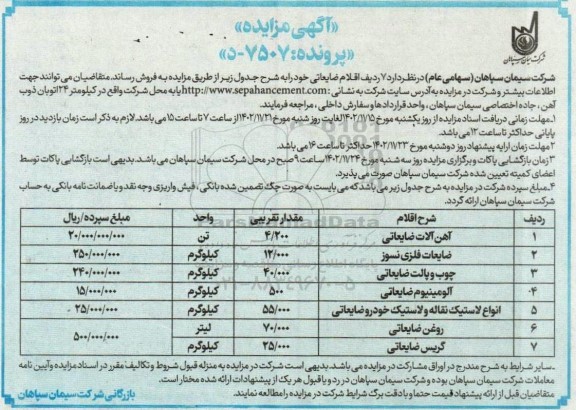 شرکت سیمان سپاهان
«آگهی مزایده»
«پرونده: ۷۵۰۷-د»
شرکت سیمان سپاهان (سهامی عام) در نظر دارد ۷ ردیف اقلام ضایعاتی خود را به شرح جدول زیر از طریق مزایده به فروش رساند. متقاضیان می توانند جهت
اطلاعات بیشتر و شرکت در مزایده به آدرس سایت شرکت به نشانی: http://www.sepahancement.com یا به محل شرکت واقع در کیلومتر ۲۴ اتوبان ذوب
آهن، جاده اختصاصی سیمان سپاهان، واحد قراردادها و سفارش داخلی، مراجعه فرمایند.
۱ـ مهلت زمانی دریافت اسناد مزایده از روز یکشنبه مورخ ۱۴۰۲/۱۱/۱۵ لغایت روز شنبه مورخ ۱۴۰۲/۱۱/۲۱ از ساعت ۷ تا ساعت ۱۵ می باشد. لازم به ذکر است زمان بازدید در روز
پایانی حداکثر تا ساعت ۱۲ می باشد.
۲ـ مهلت زمان ارایه پیشنهاد روز دوشنبه مورخ ۱۴۰۲/۱۱/۲۳ حداکثر تا ساعت ۱۴ می باشد.
۳ـ زمان بازگشایی پاکات و برگزاری مزایده روز سه شنبه مورخ ۱۴۰۲/۱۱/۲۴ ساعت ۹ صبح در محل شرکت سیمان سپاهان می باشد. بدیهی است بازگشایی پاکات توسط
اعضای کمیته تعیین شده شرکت سیمان سپاهان صورت می پذیرد.
۴ـ مبلغ سپرده شرکت در مزایده به شرح جدول زیر می باشد که می بایست به صورت چک تضمین شده بانکی، فیش واریزی وجه نقد و یا ضمانت نامه بانکی به حساب
شرکت سیمان سپاهان ارائه گردد.
ردیف شرح اقلام مقدار تقریبی واحد مبلغ سپرده/ریال
۱ آهن آلات ضایعاتی ۴/۲۰۰ تن ۲۰/۰۰۰/۰۰۰/۰۰۰
۲ ضایعات فلزی نسوز ۱۲/۰۰۰ کیلوگرم ۲۵۰/۰۰۰/۰۰۰
۳ چوب و پالت ضایعاتی ۴۰/۰۰۰ کیلوگرم ۲۴۰/۰۰۰/۰۰۰
۴ آلومینیوم ضایعاتی ۵۰۰ کیلوگرم ۱۵/۰۰۰/۰۰۰
۵ انواع لاستیک نقاله و لاستیک خودرو ضایعاتی ۵۵/۰۰۰ کیلوگرم ۲۵/۰۰۰/۰۰۰
۶ روغن ضایعاتی ۷۰/۰۰۰ لیتر ۵۰۰/۰۰۰/۰۰۰
۷ گریس ضایعاتی ۲۵/۰۰۰ کیلوگرم
ـ سایر شرایط به شرح مندرج در اوراق مشارکت در مزایده می باشد. بدیهی است شرکت در مزایده به منزله قبول شروط و تکالیف مقرر در اسناد مزایده و آیین نامه
معاملات شرکت سیمان سپاهان بوده و شرکت سیمان سپاهان در رد و یا قبول هر یک از پیشنهادات ارائه شده مختار است.
متقاضیان قبل از ارائه پیشنهاد قیمت حتما و با دقت برگ شرایط شرکت در مزایده را مطالعه نمایند.
بازرگانی شرکت سیمان سپاهان